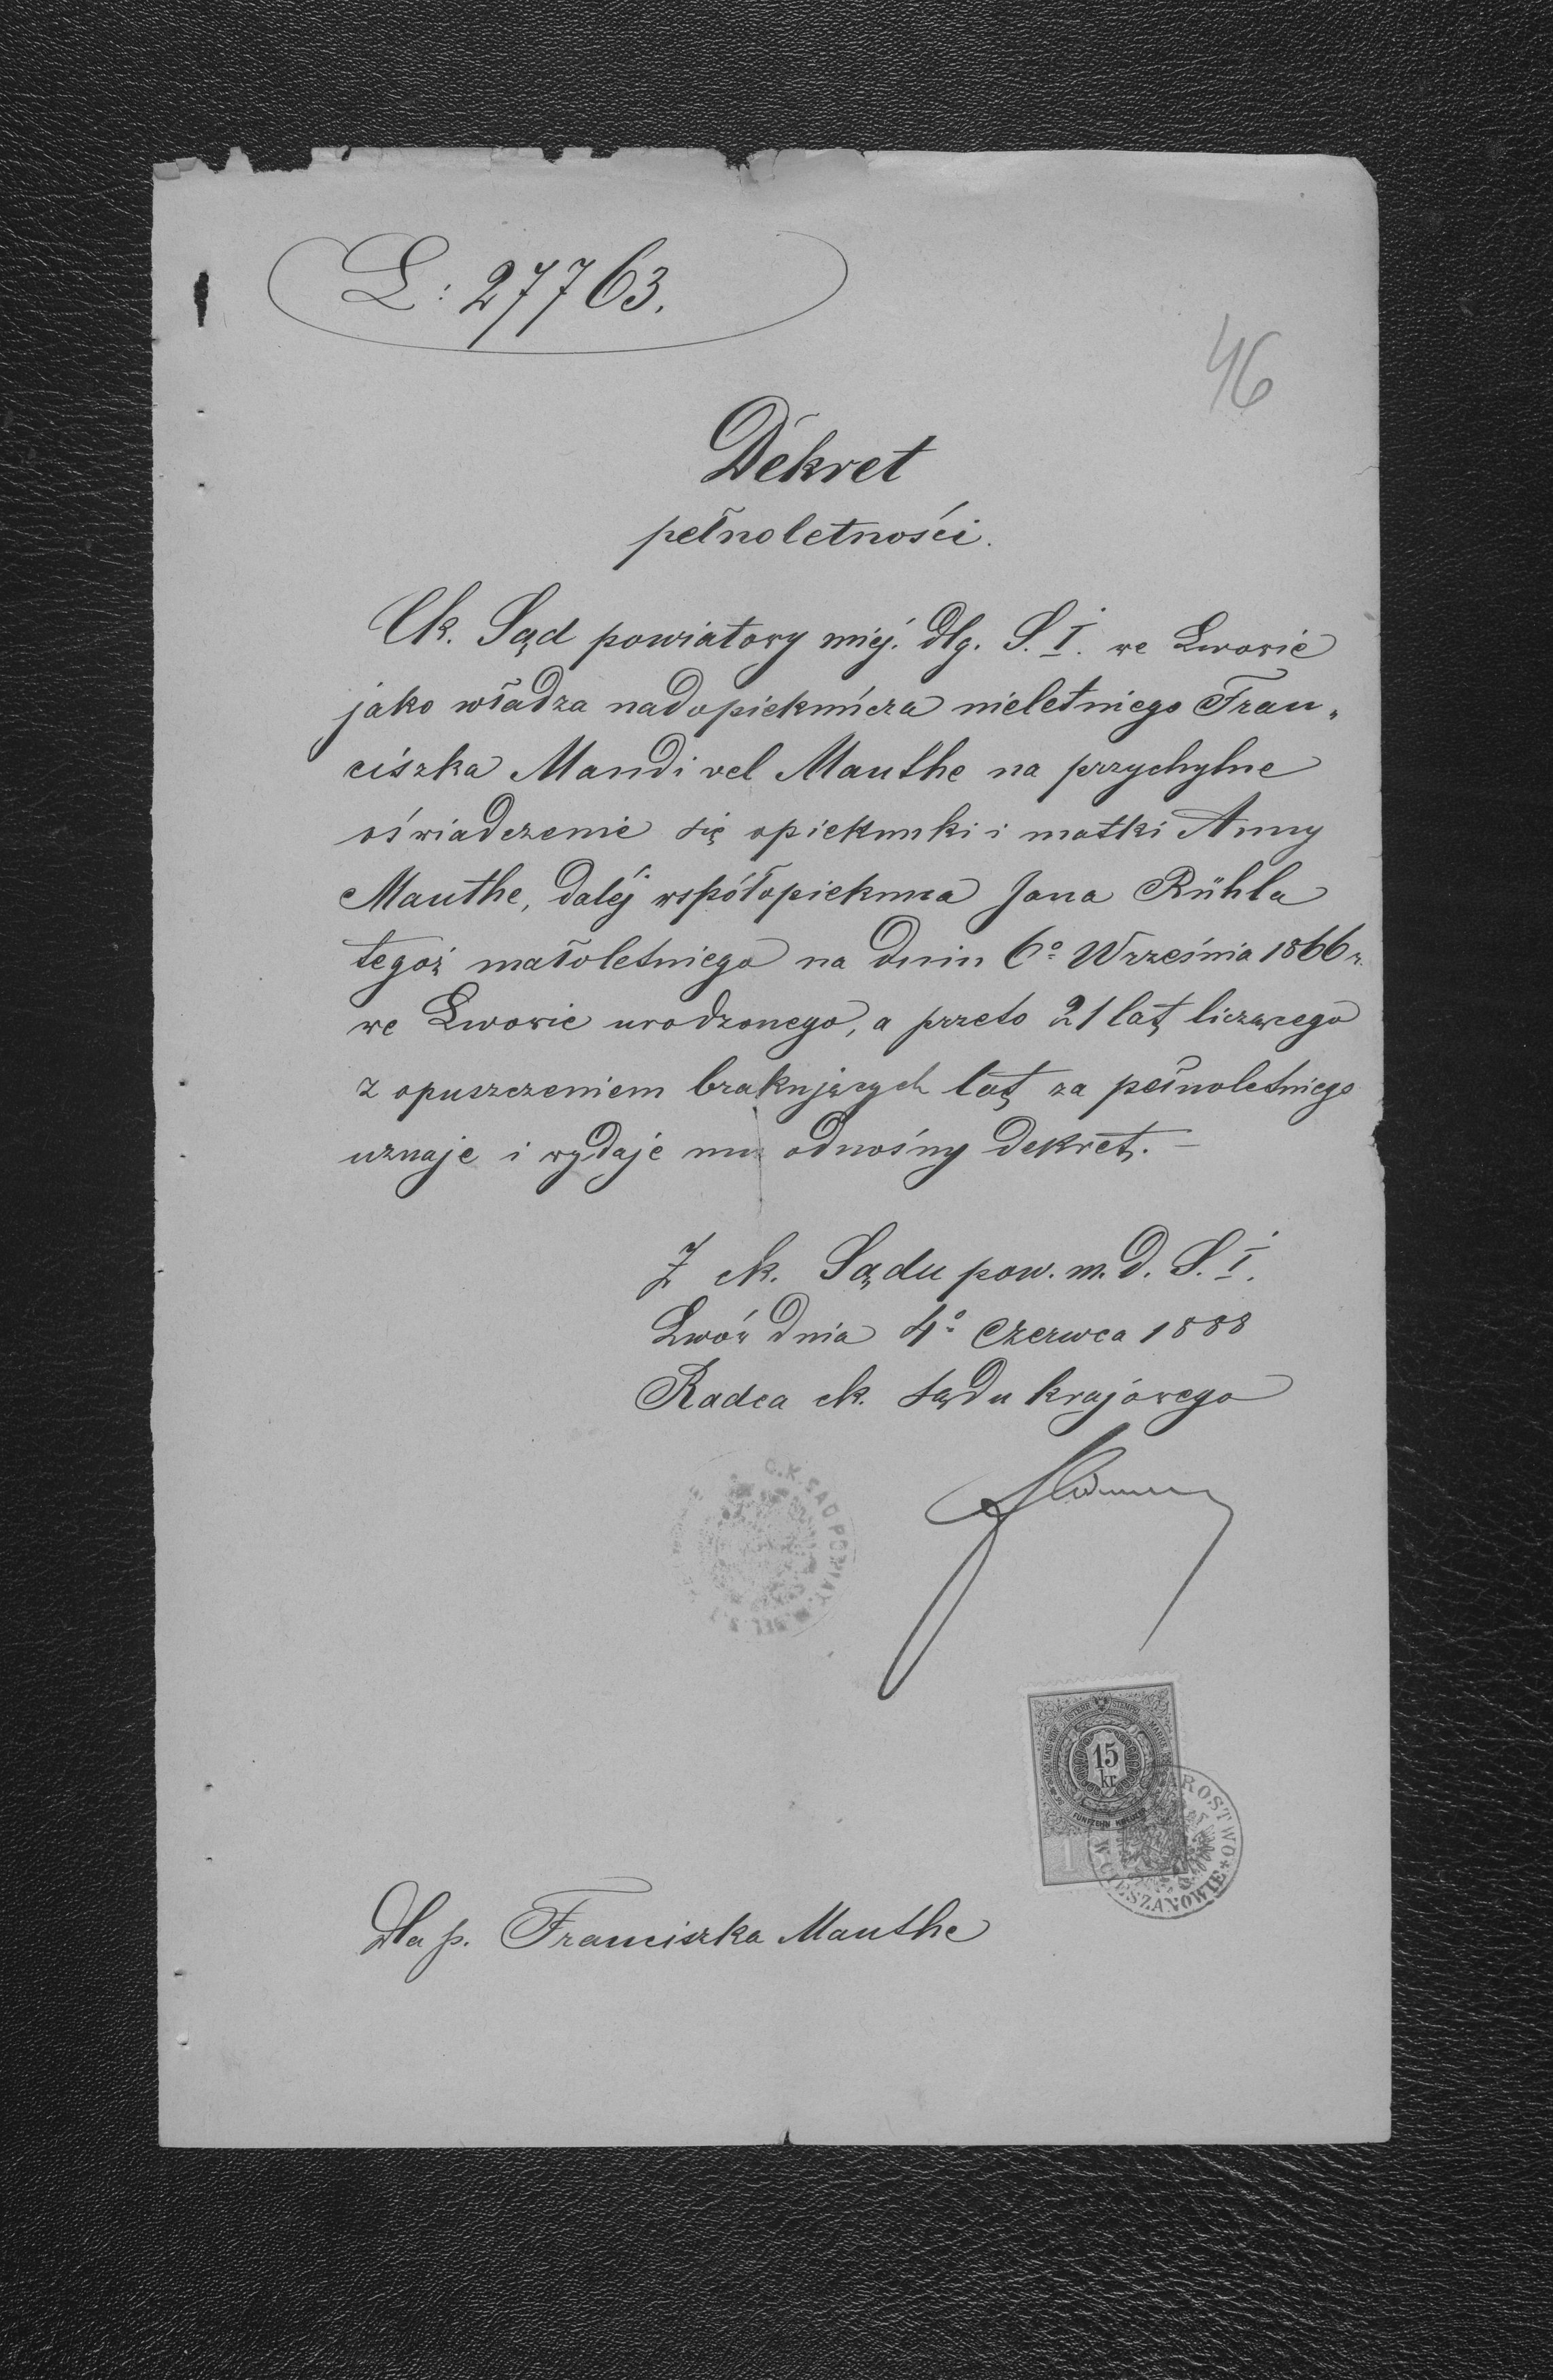 L: 27763.
46
Dekret
pełnoletności.
Ck. Sąd powiatowy miej. dlg. S. I. we Lwowie
jako władza nadopiekuńcza nieletniego Fran„
ciszka Mandi vel Mauthe na przychylne
oświadczenie się opiekunki i matki Anny
Mauthe, daléj współopiekuna Jana Rühla
tegoż małoletniego na dniu 6º Września 1866 r.
we Lwowie urodzonego, a przeto 21 lat liczącego
z opuszczeniem brakujących lat za pełnoletniego
uznaje i wydaje mu odnośny dekret. —
Z ck. Sądu pow. m. d. S. I.
Lwów dnia 4º Czerwca 1888
Radca ck. sądu krajowego
C. K. SĄD POWIAT.
15
kr
STAROSTWO
W CIESZANOWIE
Dla p. Franciszka Mauthe